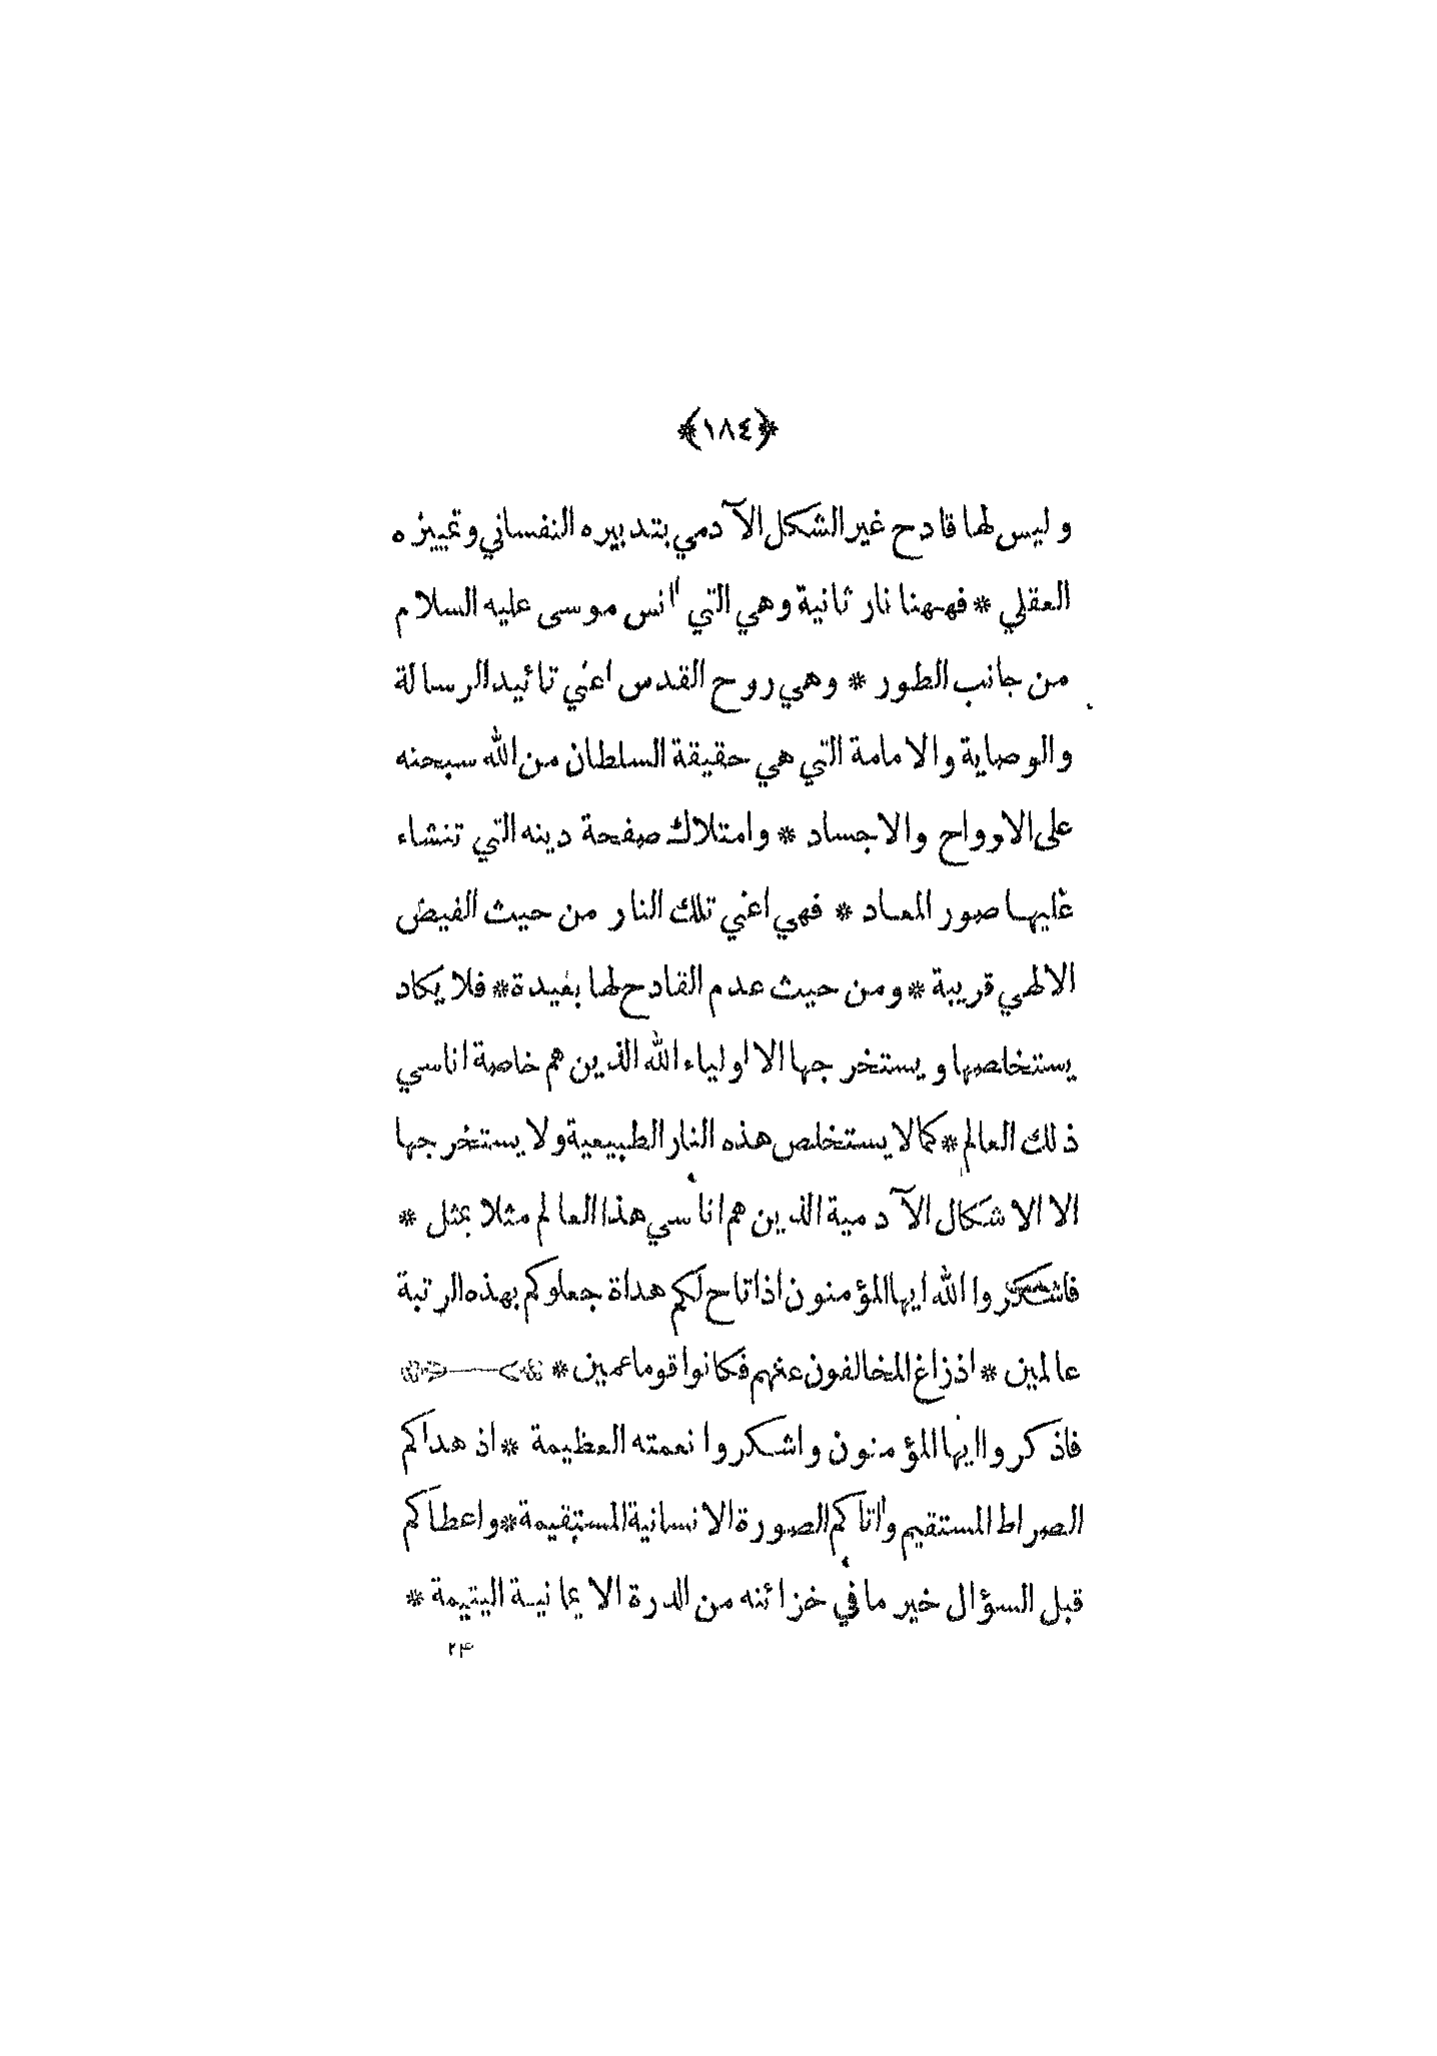 ﴿١٨٤﴾
وليس لها قادح غير الشكل الآدمي بتدبيره النفساني وتمييزه
العقلي * فههنا نار ثانية وهي التي اٰنس موسى عليه السلام
من جانب الطور * وهي روح القدس اعني تائيد الرسالة
والوصاية والامامة التي هي حقيقة السلطان من الله سبحنه
على الارواح والاجساد * وامتلاك صفحة دينه التي تنشاء
عليها صور المعاد * فهي اعني تلك النار من حيث الفيض
الالهي قريبة * ومن حيث عدم القادح لها بعيدة * فلا يكاد
يستخلصها ويستخرجها الا اولياء الله الذين هم خاصة اناسي
ذلك العالم * كما لا يستخلص هذه النار الطبيعية ولا يستخرجها
الا الاشكال الآدمية الذين هم اناسي هذا العالم مثلا بمثل *
فاشكروا الله ايها المؤمنون اذ اتاح لكم هداة جعلوكم بهذه الرتبة
عالمين * اذ زاغ المخالفون عنهم فكانوا قوما عمين *
فاذكروا ايها المؤمنون واشكروا نعمته العظيمة * اذ هداكم
الصراط المستقيم واٰتاكم الصورة الانسانية المستقيمة * واعطاكم
قبل السؤال خير ما في خزائنه من الدرة الايمانية اليتيمة *
٢٤